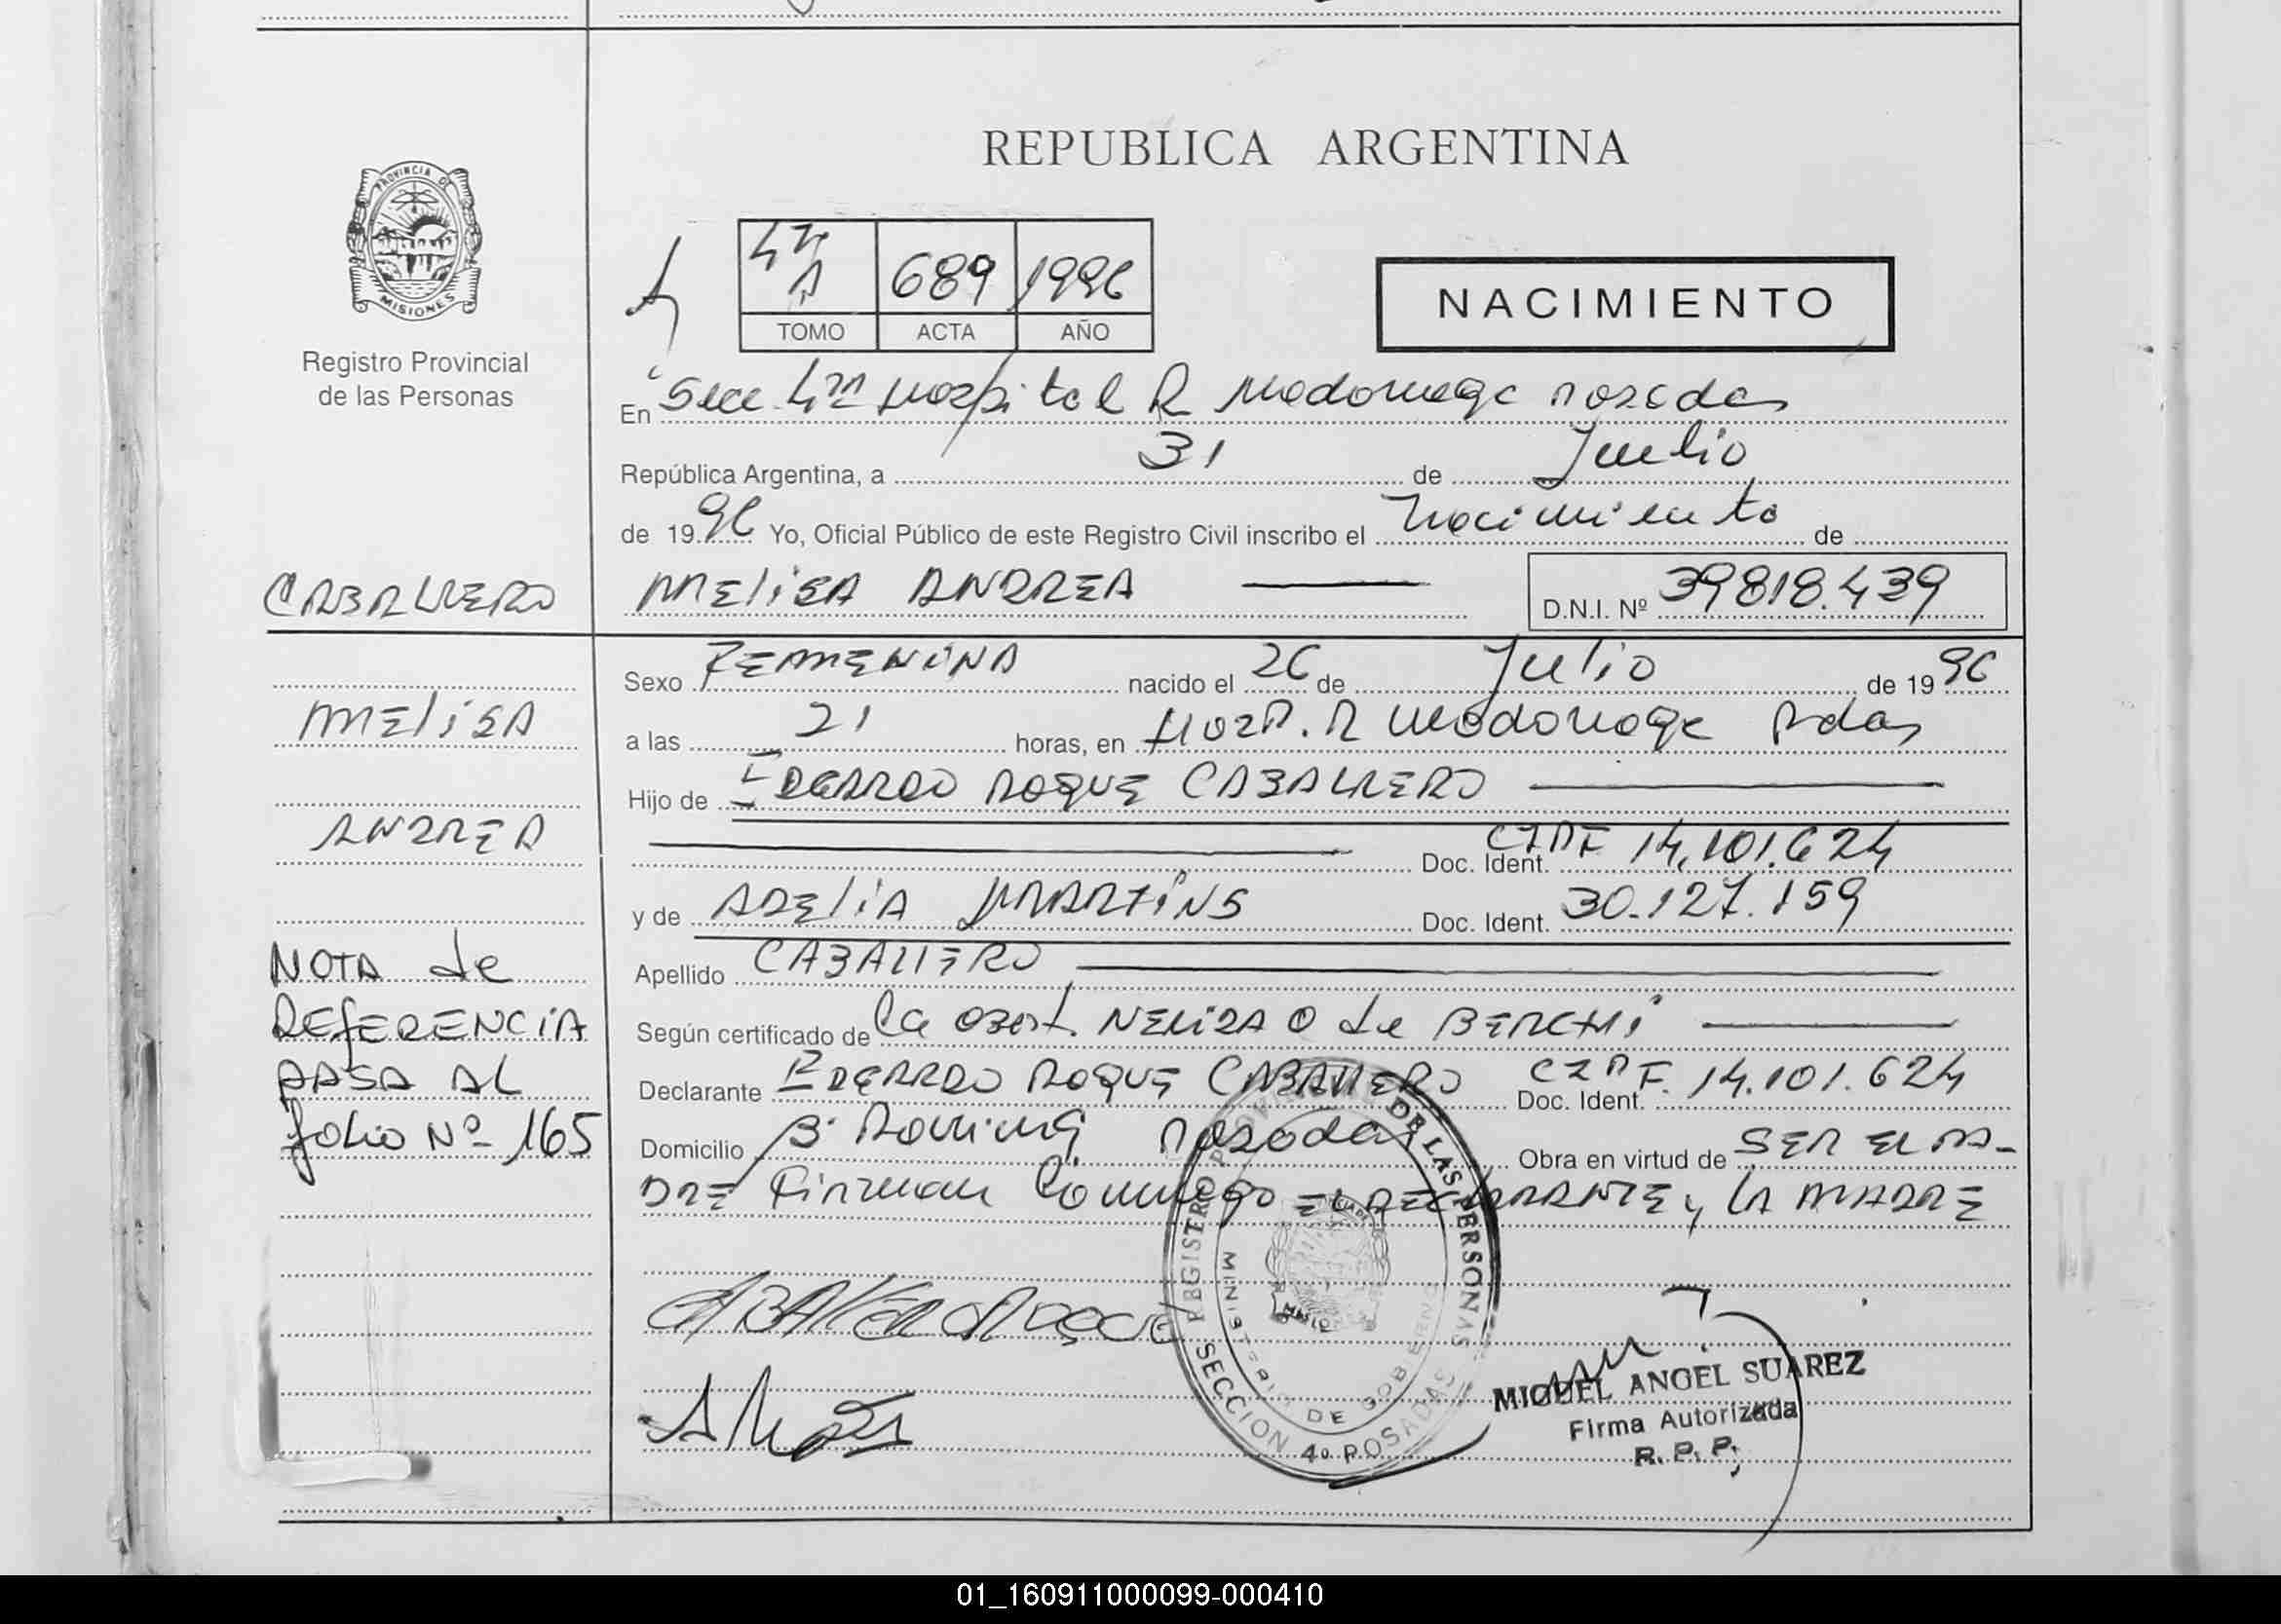 REPUBLICA ARGENTINA
PROVINCIA DE
MISIONES
Registro Provincial
de las Personas
4ta A 689 1996
TOMO ACTA AÑO
NACIMIENTO
En Secc 4ta Hospital R Madariaga Posadas
República Argentina, a 31 de Julio
de 1996 Yo, Oficial Público de este Registro Civil inscribo el Nacimiento de
CABALLERO
MELISA ANDREA
D.N.I. Nº 39818.439
Sexo FEMENINA nacido el 26 de Julio de 1996
MELISA
a las 21 horas, en HOSP. R Madariaga Pdas
Hijo de EDGARDO ROQUE CABALLERO
ANDREA
Doc. Ident. CIPF 14.101.624
y de ADELIA MARTINS Doc. Ident. 30.127.159
NOTA de
Apellido CABALLERO
REFERENCIA
Según certificado de la OBST. NELIDA O de BERCHI
PASA AL
Declarante EDGARDO ROQUE CABALLERO Doc. Ident. CIPF. 14.101.624
folio Nº 165
Domicilio Bº Posadas Obra en virtud de SER EL PA-
DRE Firman Conmigo EL DECLARANTE y LA MADRE
REGISTRO PROVINCIAL DE LAS PERSONAS
MINISTERIO DE GOBIERNO
SECCION 4º POSADAS
CABALLERO ROQUE
MIGUEL ANGEL SUAREZ
Firma Autorizada
R. P. P.
01_160911000099-000410